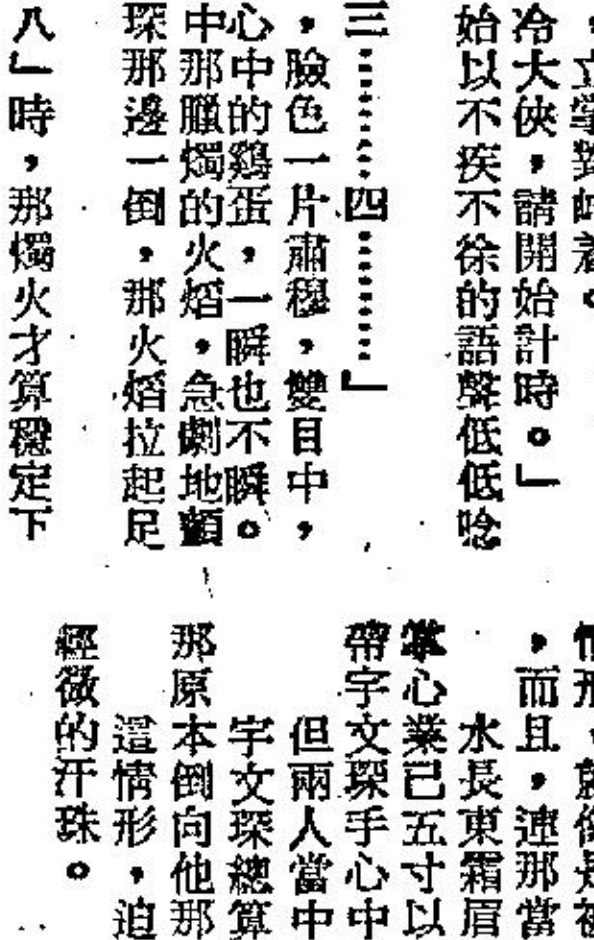 ，立掌對峙着。
冷大俠，請開始計時。」
始以不疾不徐的語聲低低唸
三…………四…………」
，臉色一片肅穆，雙目中，
心中的鷄蛋，一瞬也不瞬。
中那臘燭的火熖，急劇地顫
琛那邊一倒，那火熖拉起足
八」時，那燭火才算穩定下
，而且，連那當
水長東霜眉
掌心業已五寸以
帶宇文琛手心中
但兩人當中
宇文琛總算
那原本倒向他那
這情形，迫
經微的汗珠。